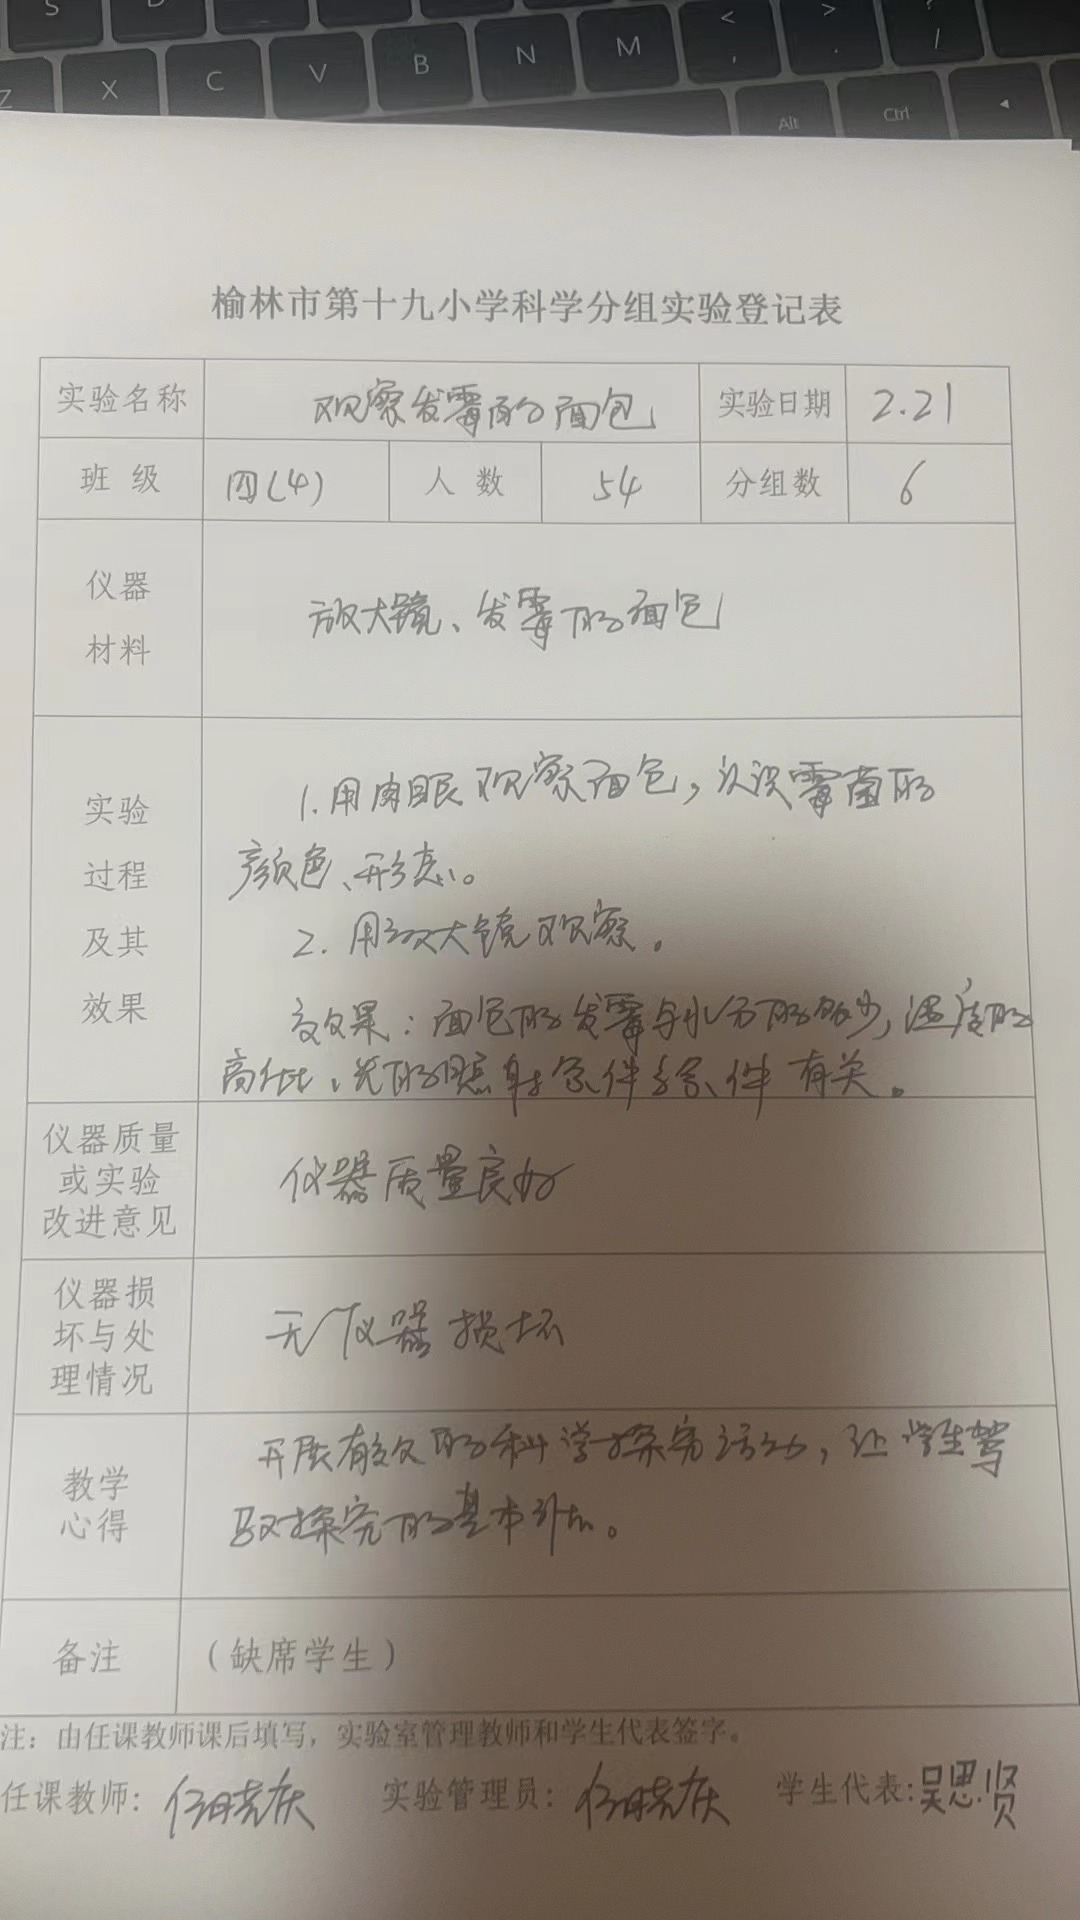 S D < > ?
Z X C V B N M , . /
Alt Ctrl ◄
榆林市第十九小学科学分组实验登记表
实验名称 观察发霉的面包 实验日期 2.21
班 级 四(4) 人 数 54 分组数 6
仪器
材料
放大镜、发霉的面包
实验
过程
及其
效果
1.用肉眼观察面包,认识霉菌的
颜色、形态。
2.用放大镜观察。
效果:面包的发霉与水分的多少,温度的
高低、光的照射条件等条件有关。
仪器质量
或实验
改进意见
仪器质量良好
仪器损
坏与处
理情况
无仪器损坏
教学
心得
开展有效的科学探究活动,让学生驾
驭探究的基本
备注 (缺席学生)
注:由任课教师课后填写,实验室管理教师和学生代表签字。
任课教师: 任晓庆 实验管理员: 任晓庆 学生代表:吴思贤